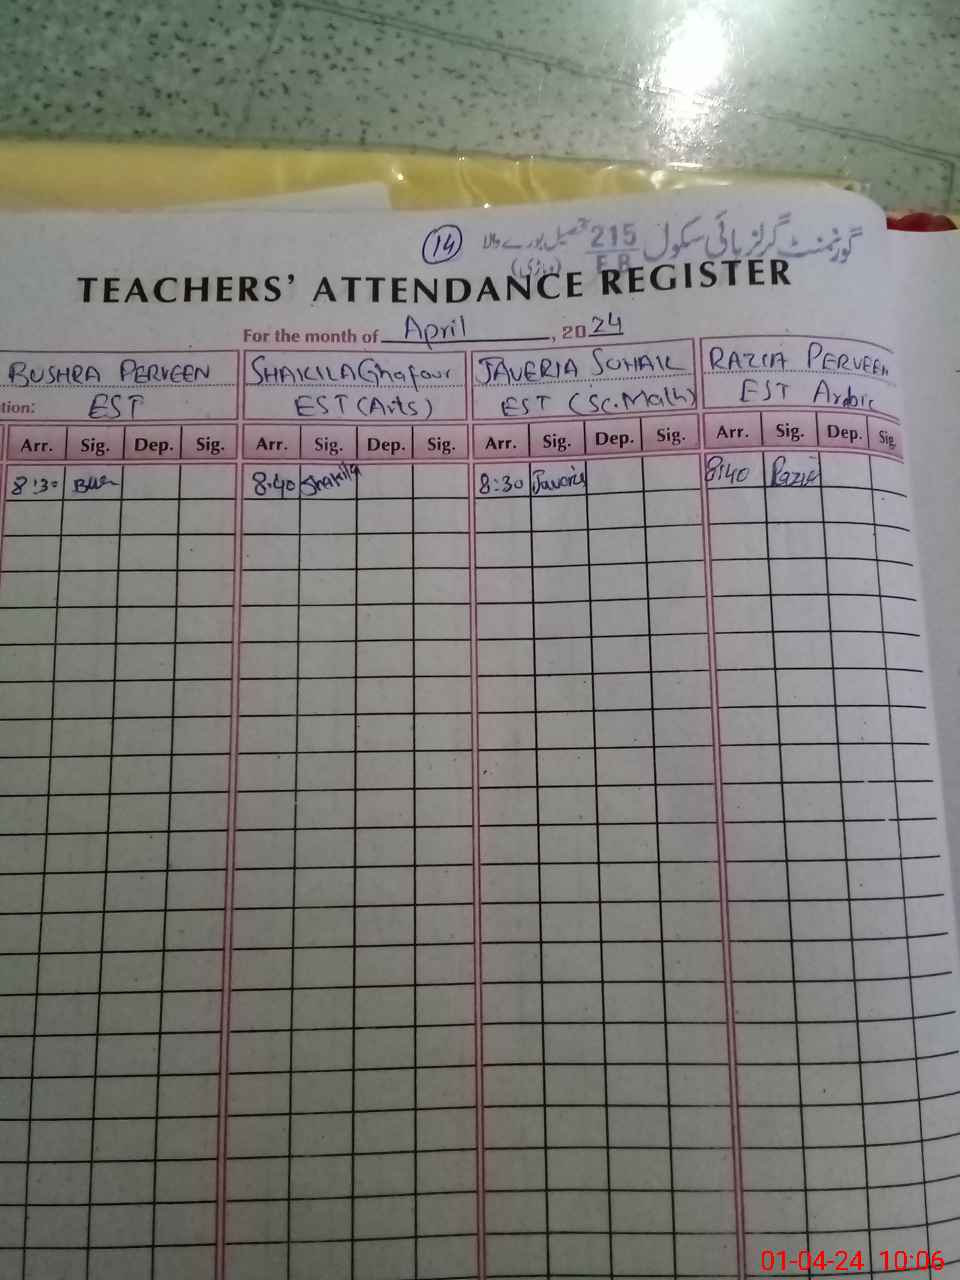 14 گورنمنٹ گرلز ہائی سکول 215 تحصیل بورے والا
E.B (وہاڑی)
TEACHERS' ATTENDANCE REGISTER
For the month of April, 2024
BUSHRA PERVEEN SHAKILA Ghafour JAVERIA SOHAIL RAZIA PERVEEN
tion: EST EST (Arts) EST (Sc.Math) EST Arabic
Arr. Sig. Dep. Sig. Arr. Sig. Dep. Sig. Arr. Sig. Dep. Sig. Arr. Sig. Dep. Sig.
8:30 8:40 Shakila 8:30 Javeria 8:40 Razia
01-04-24 10:06